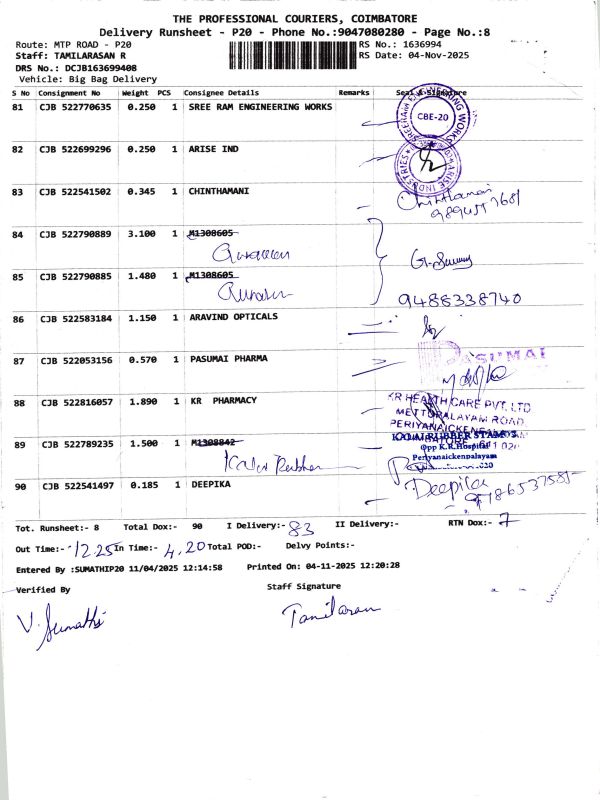 THE PROFESSIONAL COURIERS, COIMBATORE
Delivery Runsheet - P20 - Phone No.:9047080280 - Page No.:8
Route: MTP ROAD - P20 RS No.: 1636994
Staff: TAMILARASAN R RS Date: 04-Nov-2025
DRS No.: DCJB163699408
Vehicle: Big Bag Delivery
S No Consignment No Weight PCS Consignee Details Remarks Seal & Signature
81 CJB 522770635 0.250 1 SREE RAM ENGINEERING WORKS
CBE-20
82 CJB 522699296 0.250 1 ARISE IND
ARISE INDUSTRIES
83 CJB 522541502 0.345 1 CHINTHAMANI
Chinthamani
84 CJB 522790889 3.100 1 M1308605
85 CJB 522790885 1.480 1 M1308605
9488338740
86 CJB 522583184 1.150 1 ARAVIND OPTICALS
87 CJB 522053156 0.570 1 PASUMAI PHARMA
PASUMAI
88 CJB 522816057 1.890 1 KR PHARMACY
KR HEALTH CARE PVT. LTD
METTUPALAYAM ROAD
PERIYANAICKENPALAYAM
89 CJB 522789235 1.500 1 M1308842
Kalai Rubber
KALAI RUBBER STAMPS
Opp K.R.Hospital
Periyanaickenpalayam
90 CJB 522541497 0.185 1 DEEPIKA
Deepika
Tot. Runsheet:- 8 Total Dox:- 90 I Delivery:- 83 II Delivery:- RTN Dox:- 7
Out Time:- 12.25 In Time:- 4.20 Total POD:- Delvy Points:-
Entered By :SUMATHIP20 11/04/2025 12:14:58 Printed On: 04-11-2025 12:20:28
Verified By Staff Signature
V. Sumathi Tamilarasan